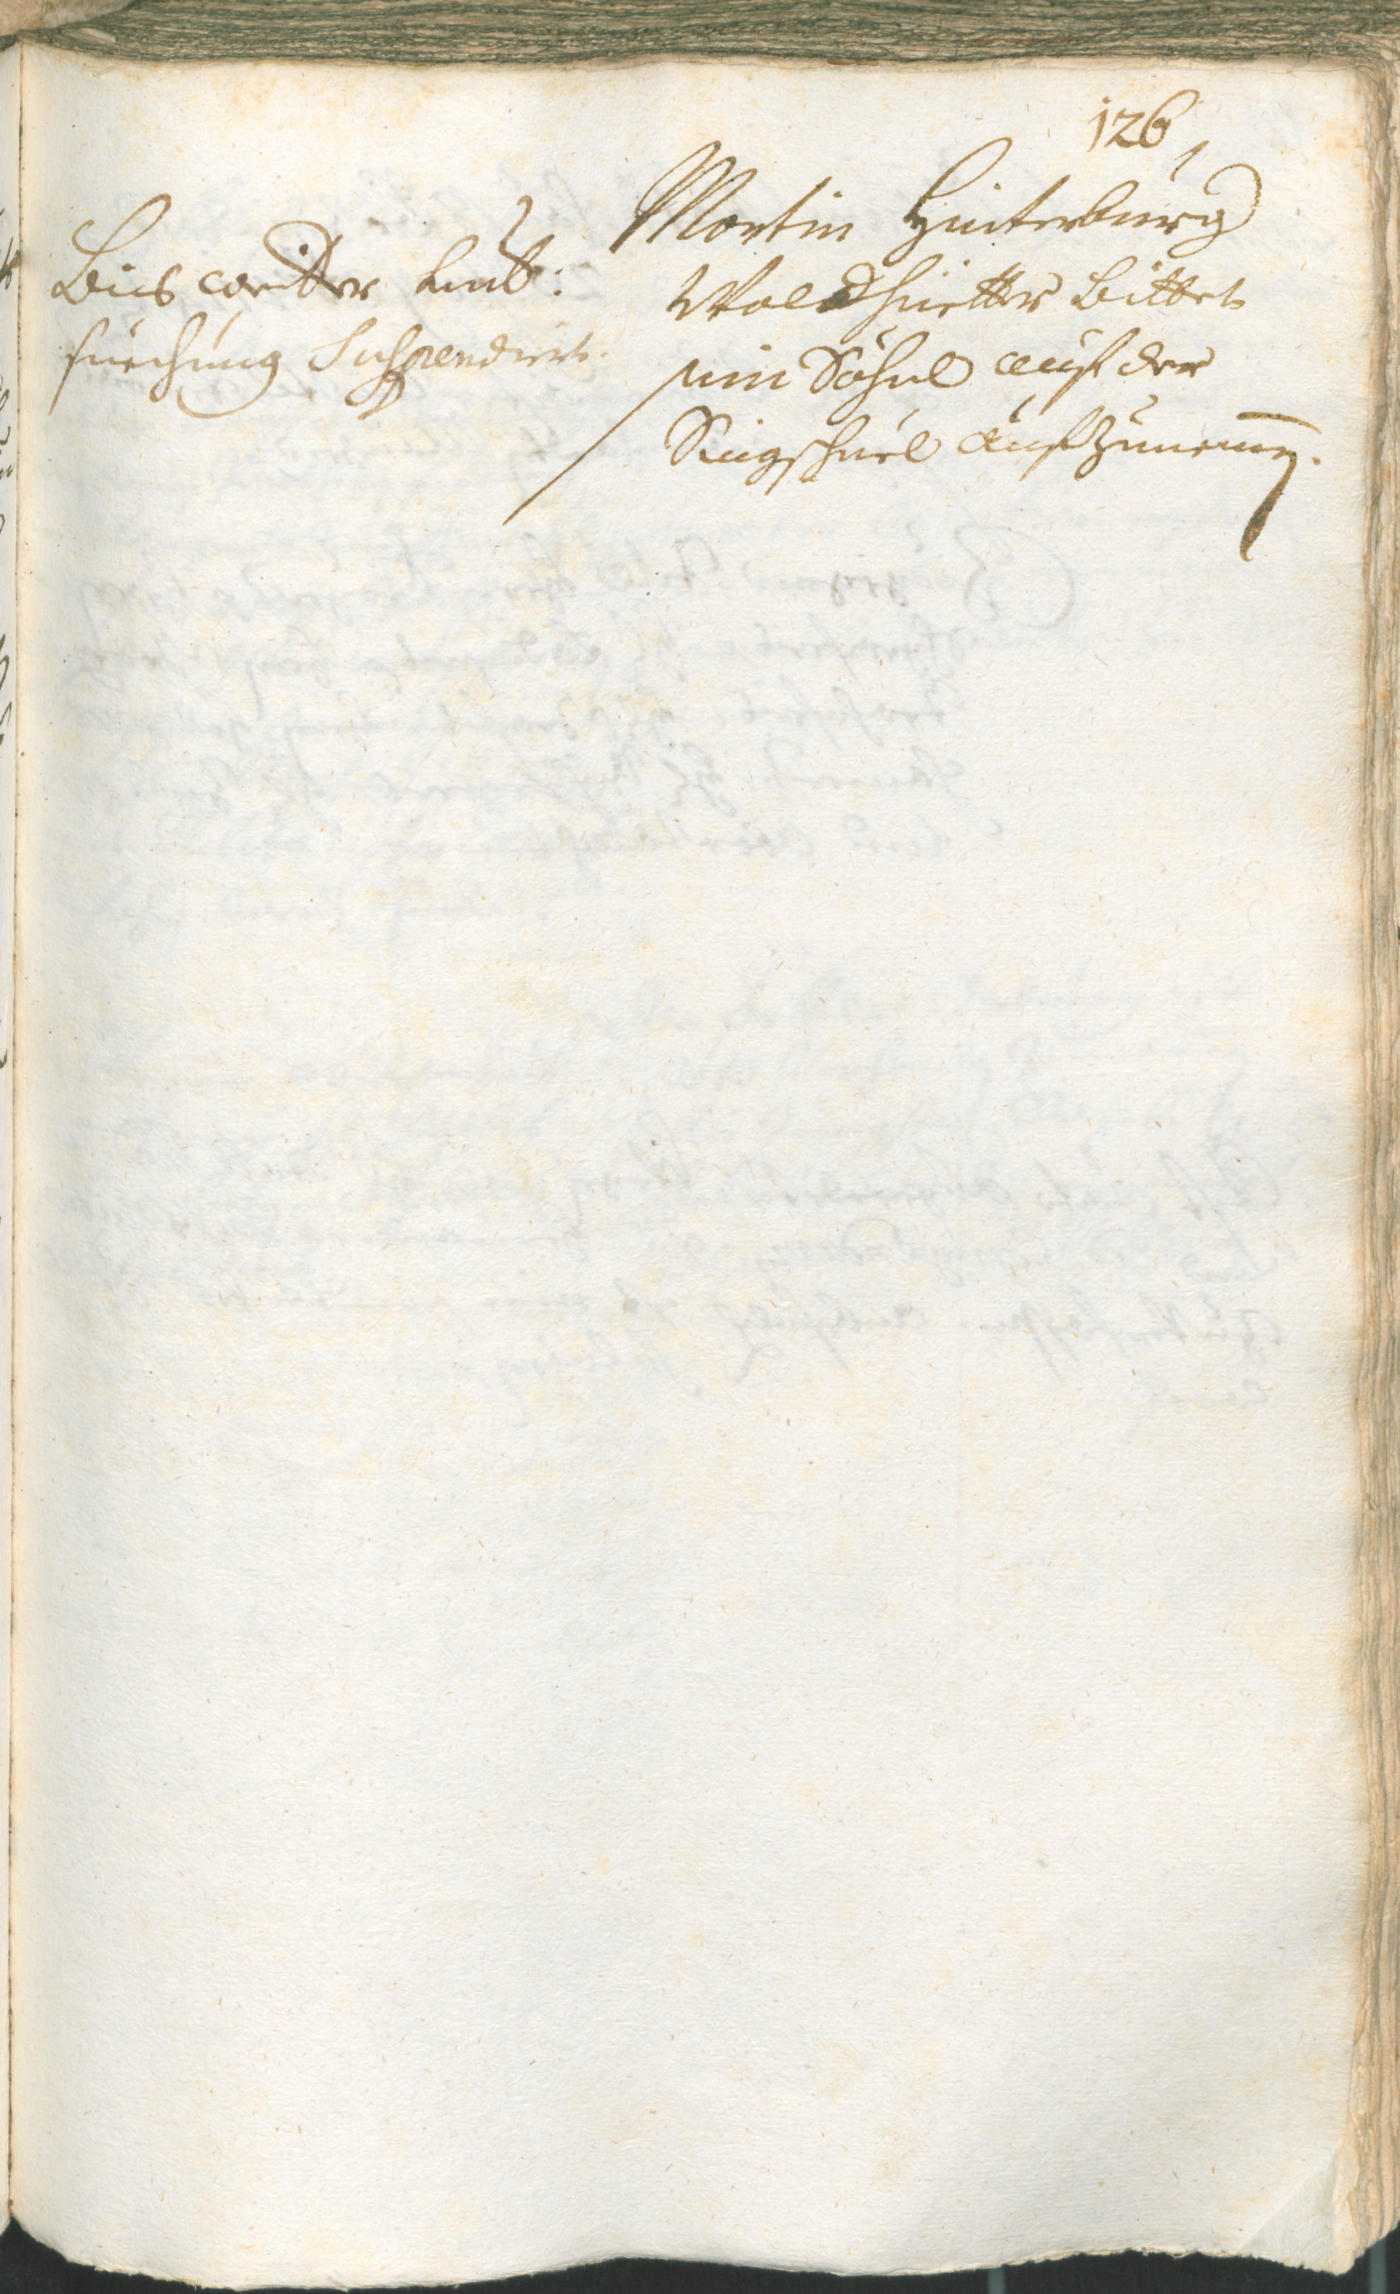 126
Martin Hinterburg
Waldhietter bittet
sein Söhnl auf der
Singschuel aufzunemen.
Bis weitter Unt:
suechung Suspendiert.